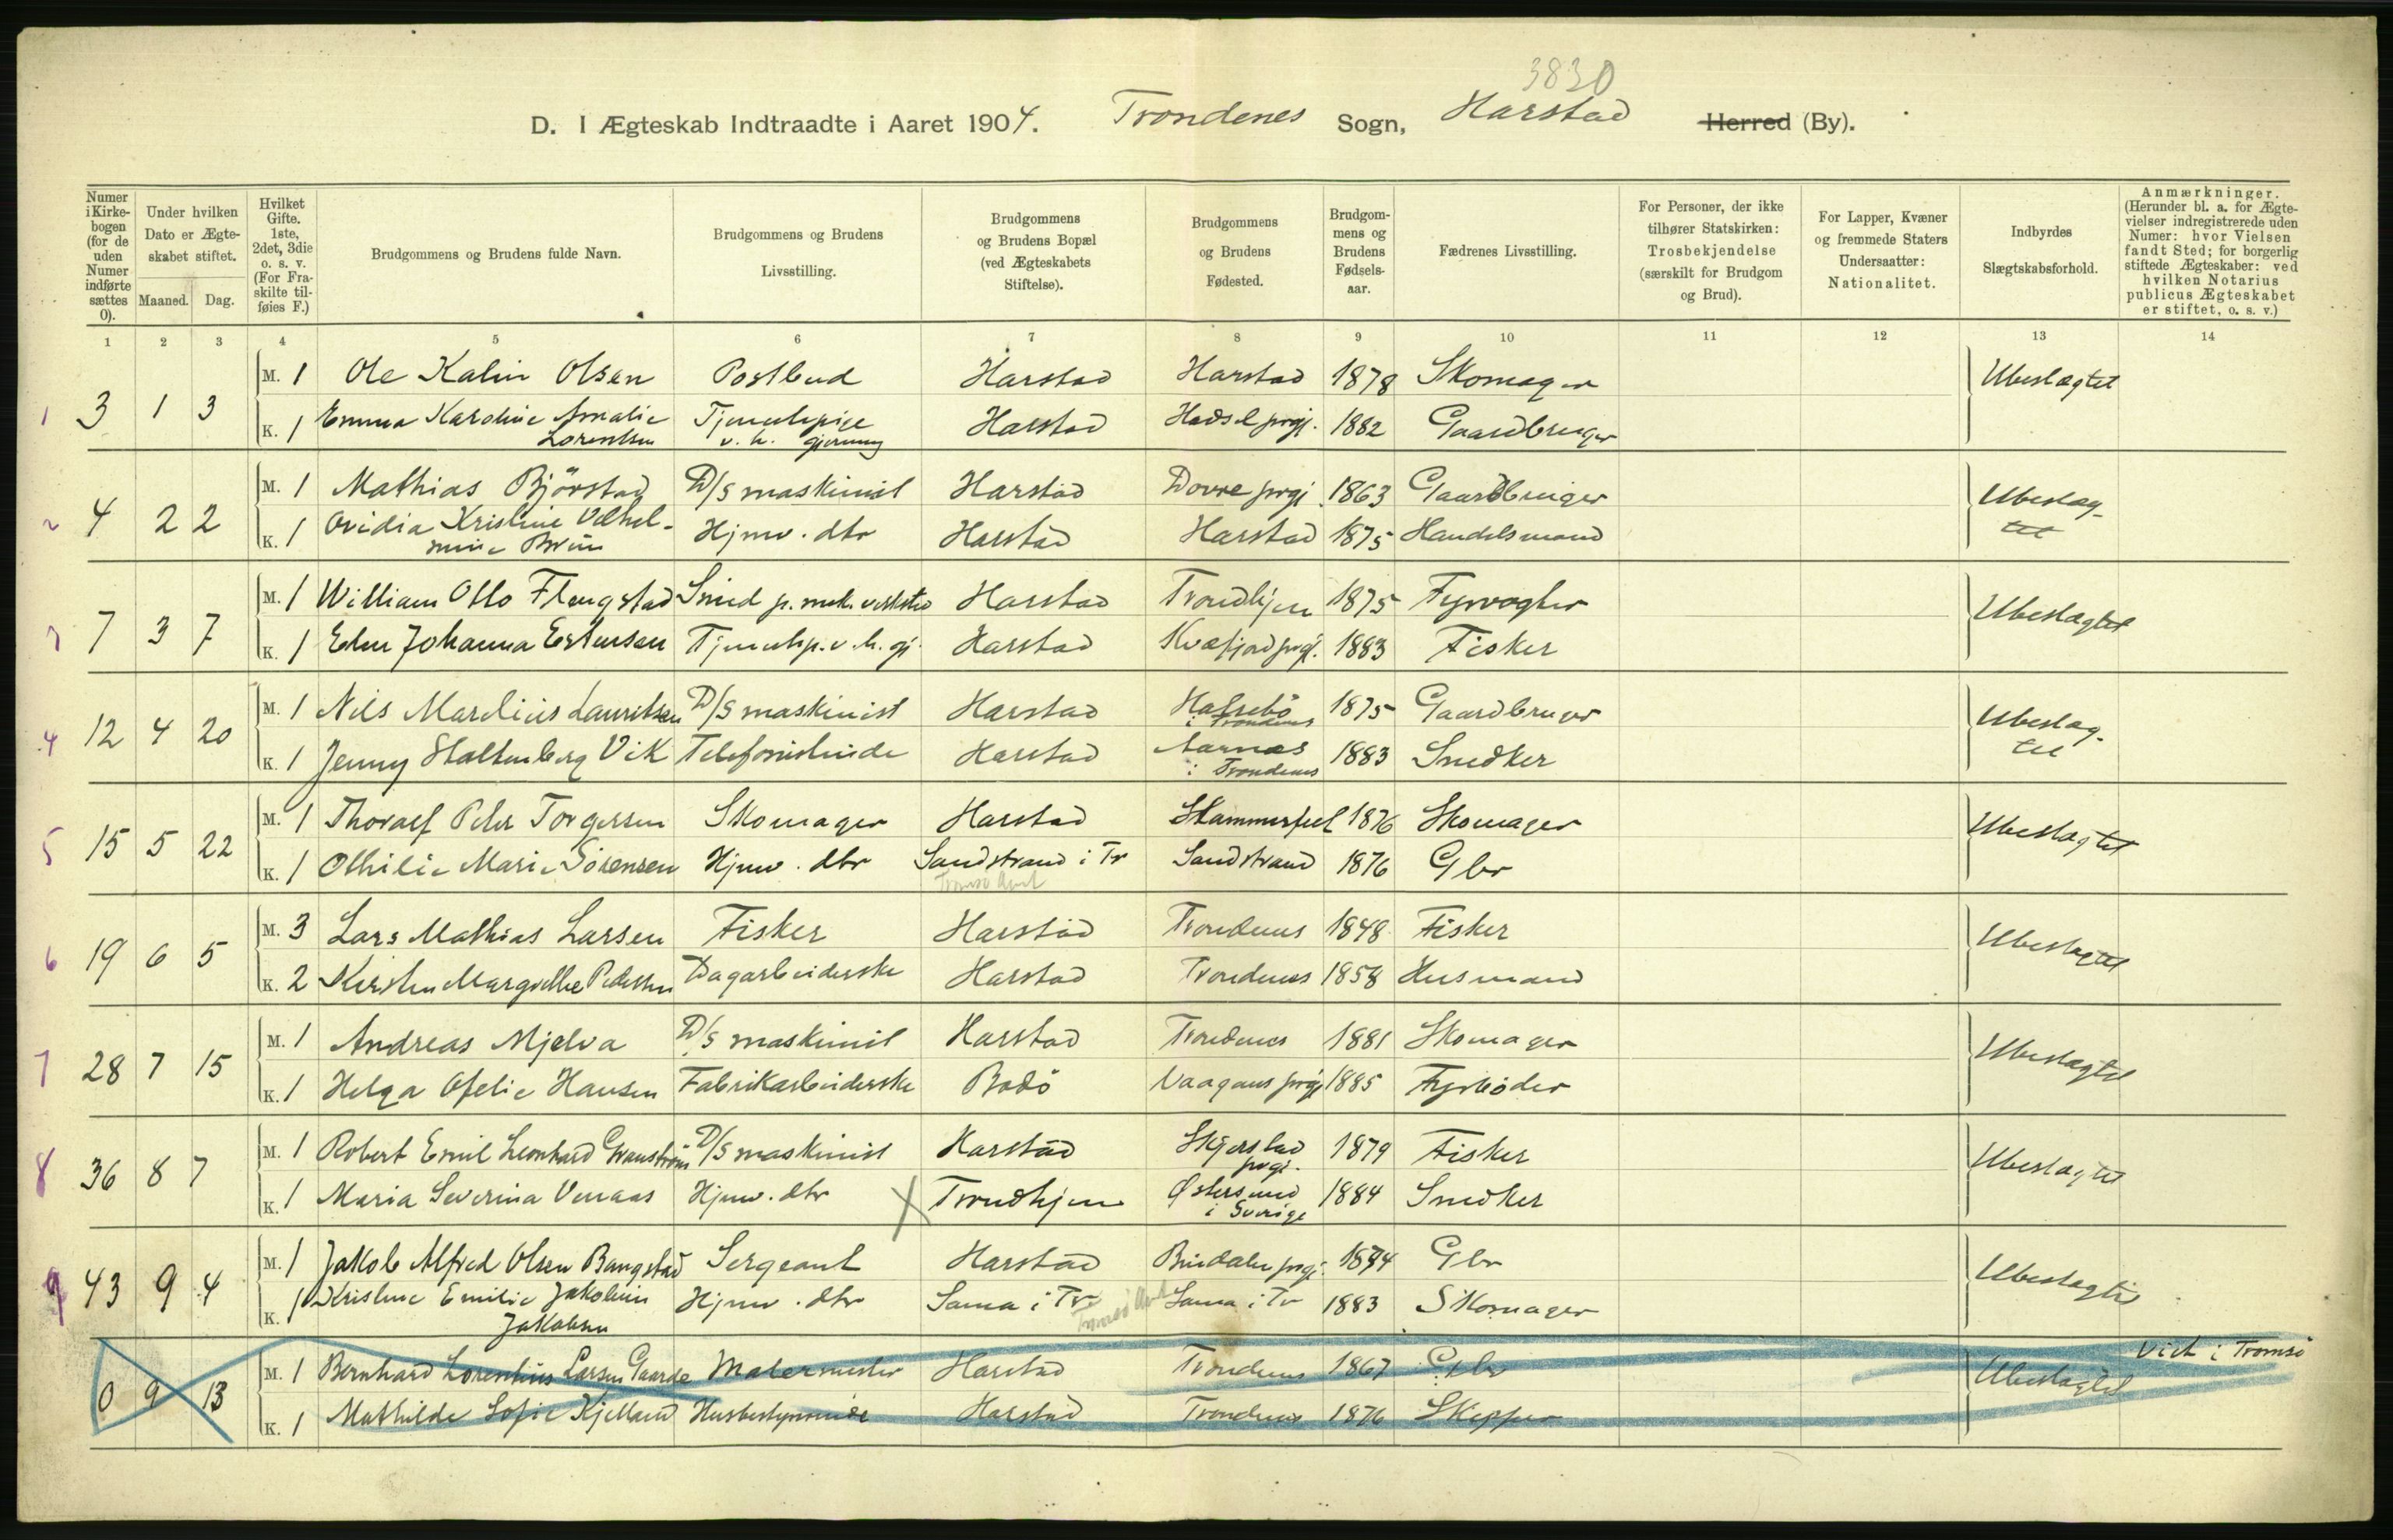 3830
D. I Ægteskab Indtraadte i Aaret 1904. Trondenes Sogn, Harstad Herred (By).
Numer i Kirke-bogen (for de uden Numer indførte sættes 0).
Under hvilken Dato er Ægte-skabet stiftet.
Maaned. Dag.
Hvilket Gifte. 1ste, 2det, 3die o. s. v. (For Fra-skilte til-føies F.)
Brudgommens og Brudens fulde Navn.
Brudgommens og Brudens Livsstilling.
Brudgommens og Brudens Bopæl (ved Ægteskabets Stiftelse).
Brudgommens og Brudens Fødested.
Brudgom-mens og Brudens Fødsels-aar.
Fædrenes Livsstilling.
For Personer, der ikke tilhører Statskirken: Trosbekjendelse (særskilt for Brudgom og Brud).
For Lapper, Kvæner og fremmede Staters Undersaatter: Nationalitet.
Indbyrdes Slægtskabsforhold.
Anmærkninger. (Herunder bl. a. for Ægte-vielser indregistrerede uden Numer: hvor Vielsen fandt Sted; for borgerlig stiftede Ægteskaber: ved hvilken Notarius publicus Ægteskabet er stiftet, o. s. v.)
1 2 3 4 5 6 7 8 9 10 11 12 13 14
1 3 1 3 M. 1 Ole Kalin Olsen Postbud Harstad Harstad 1878 Skomager Ubeslægtet
K. 1 Emma Karoline Amalie Lorentsen Tjenestepige v. h. gjerning Harstad Hadsel prgj. 1882 Gaardbruger
2 4 2 2 M. 1 Mathias Björstad D/S maskinist Harstad Dovre prgj. 1863 Gaardbruger Ubeslæg-tet
K. 1 Ovidia Kristine Vilhel-mine Bruun Hjmv. dtr Harstad Harstad 1875 Handelsmand
3 7 3 7 M. 1 William Otto Flengstad Smed p. mek. verksted Harstad Trondhjem 1875 Fyrvogter Ubeslægtet
K. 1 Johanna Estensen Tjenestep. v. h. gj. Harstad Kvæfjord prgj. 1883 Fisker
4 12 4 20 M. 1 Nils Marelius Lauritsen D/S maskinist Harstad i Trondenes 1875 Gaardbruger Ubeslæg-tet
K. 1 Jenny Stoltenberg Vik Telefonistinde Harstad Aarnes i Trondenes 1883 Snedker
5 15 5 22 M. 1 Thoralf Peter Torgersen Skomager Harstad Hammerfest 1876 Skomager Ubeslægtet
K. 1 Othilie Marie Sörensen Hjmv. dtr Sandstrand i Tr Sandstrand 1876 Gbr
Tromsö Amt
6 19 6 5 M. 3 Lars Mathias Larsen Fisker Harstad Trondenes 1848 Fisker Ubeslægtet
K. 2 Kirsten Margrethe Pedersen Dagarbeiderske Harstad Trondenes 1858 Husmand
7 28 7 15 M. 1 Andreas Mjelva D/S maskinist Harstad Trondenes 1881 Skomager Ubeslægtet
K. 1 Helga Ofelie Hansen Fabrikarbeiderske Bodö Vaagans prgj 1885 Fyrböder
8 36 8 7 M. 1 Robert Emil Leonhard Granström D/S maskinist Harstad Skjerstad prgj. 1879 Fisker Ubeslægtet
K. 1 Maria Severina Venaas Hjmv. dtr X Trondhjem Østersund i Sverige 1884 Snedker
9 43 9 4 M. 1 Jakob Alfred Olsen Bangstad Sergeant Harstad Bindalen prgj. 1874 Gbr Ubeslægtet
K. 1 Kristine Emilie Jakobine Jakobsen Hjmv. dtr Sama i Tr Tromsö Amt Sama i Tr 1883 Skomager
0 9 13 M. 1 Bernhard Lorentius Larsen Gaarde Malermester Harstad Trondenes 1867 Gbr Ubeslægtet Viet i Tromsö
K. 1 Mathilde Sofie Kjelland Husbestyrerinde Harstad Trondenes 1876 Skipper